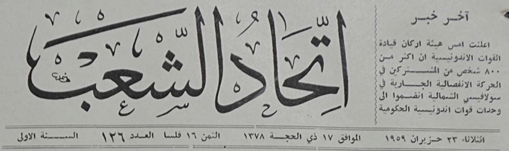 آخر خبر
اعلنت امس هيئة اركان قيادة
القوات الاندونيسية ان اكثر من
٨٠٠ شخص من المشتركين في
الحركة الانفصالية الجارية في
سولافيسي الشمالية انضموا الى
وحدات قوات اندونيسية الحكومية
اتحاد الشعب
الثلاثاء ٢٣ حزيران ١٩٥٩ الموافق ١٧ ذي الحجة ١٣٧٨ الثمن ١٦ فلسا العدد ١٢٦ السنة الاولى